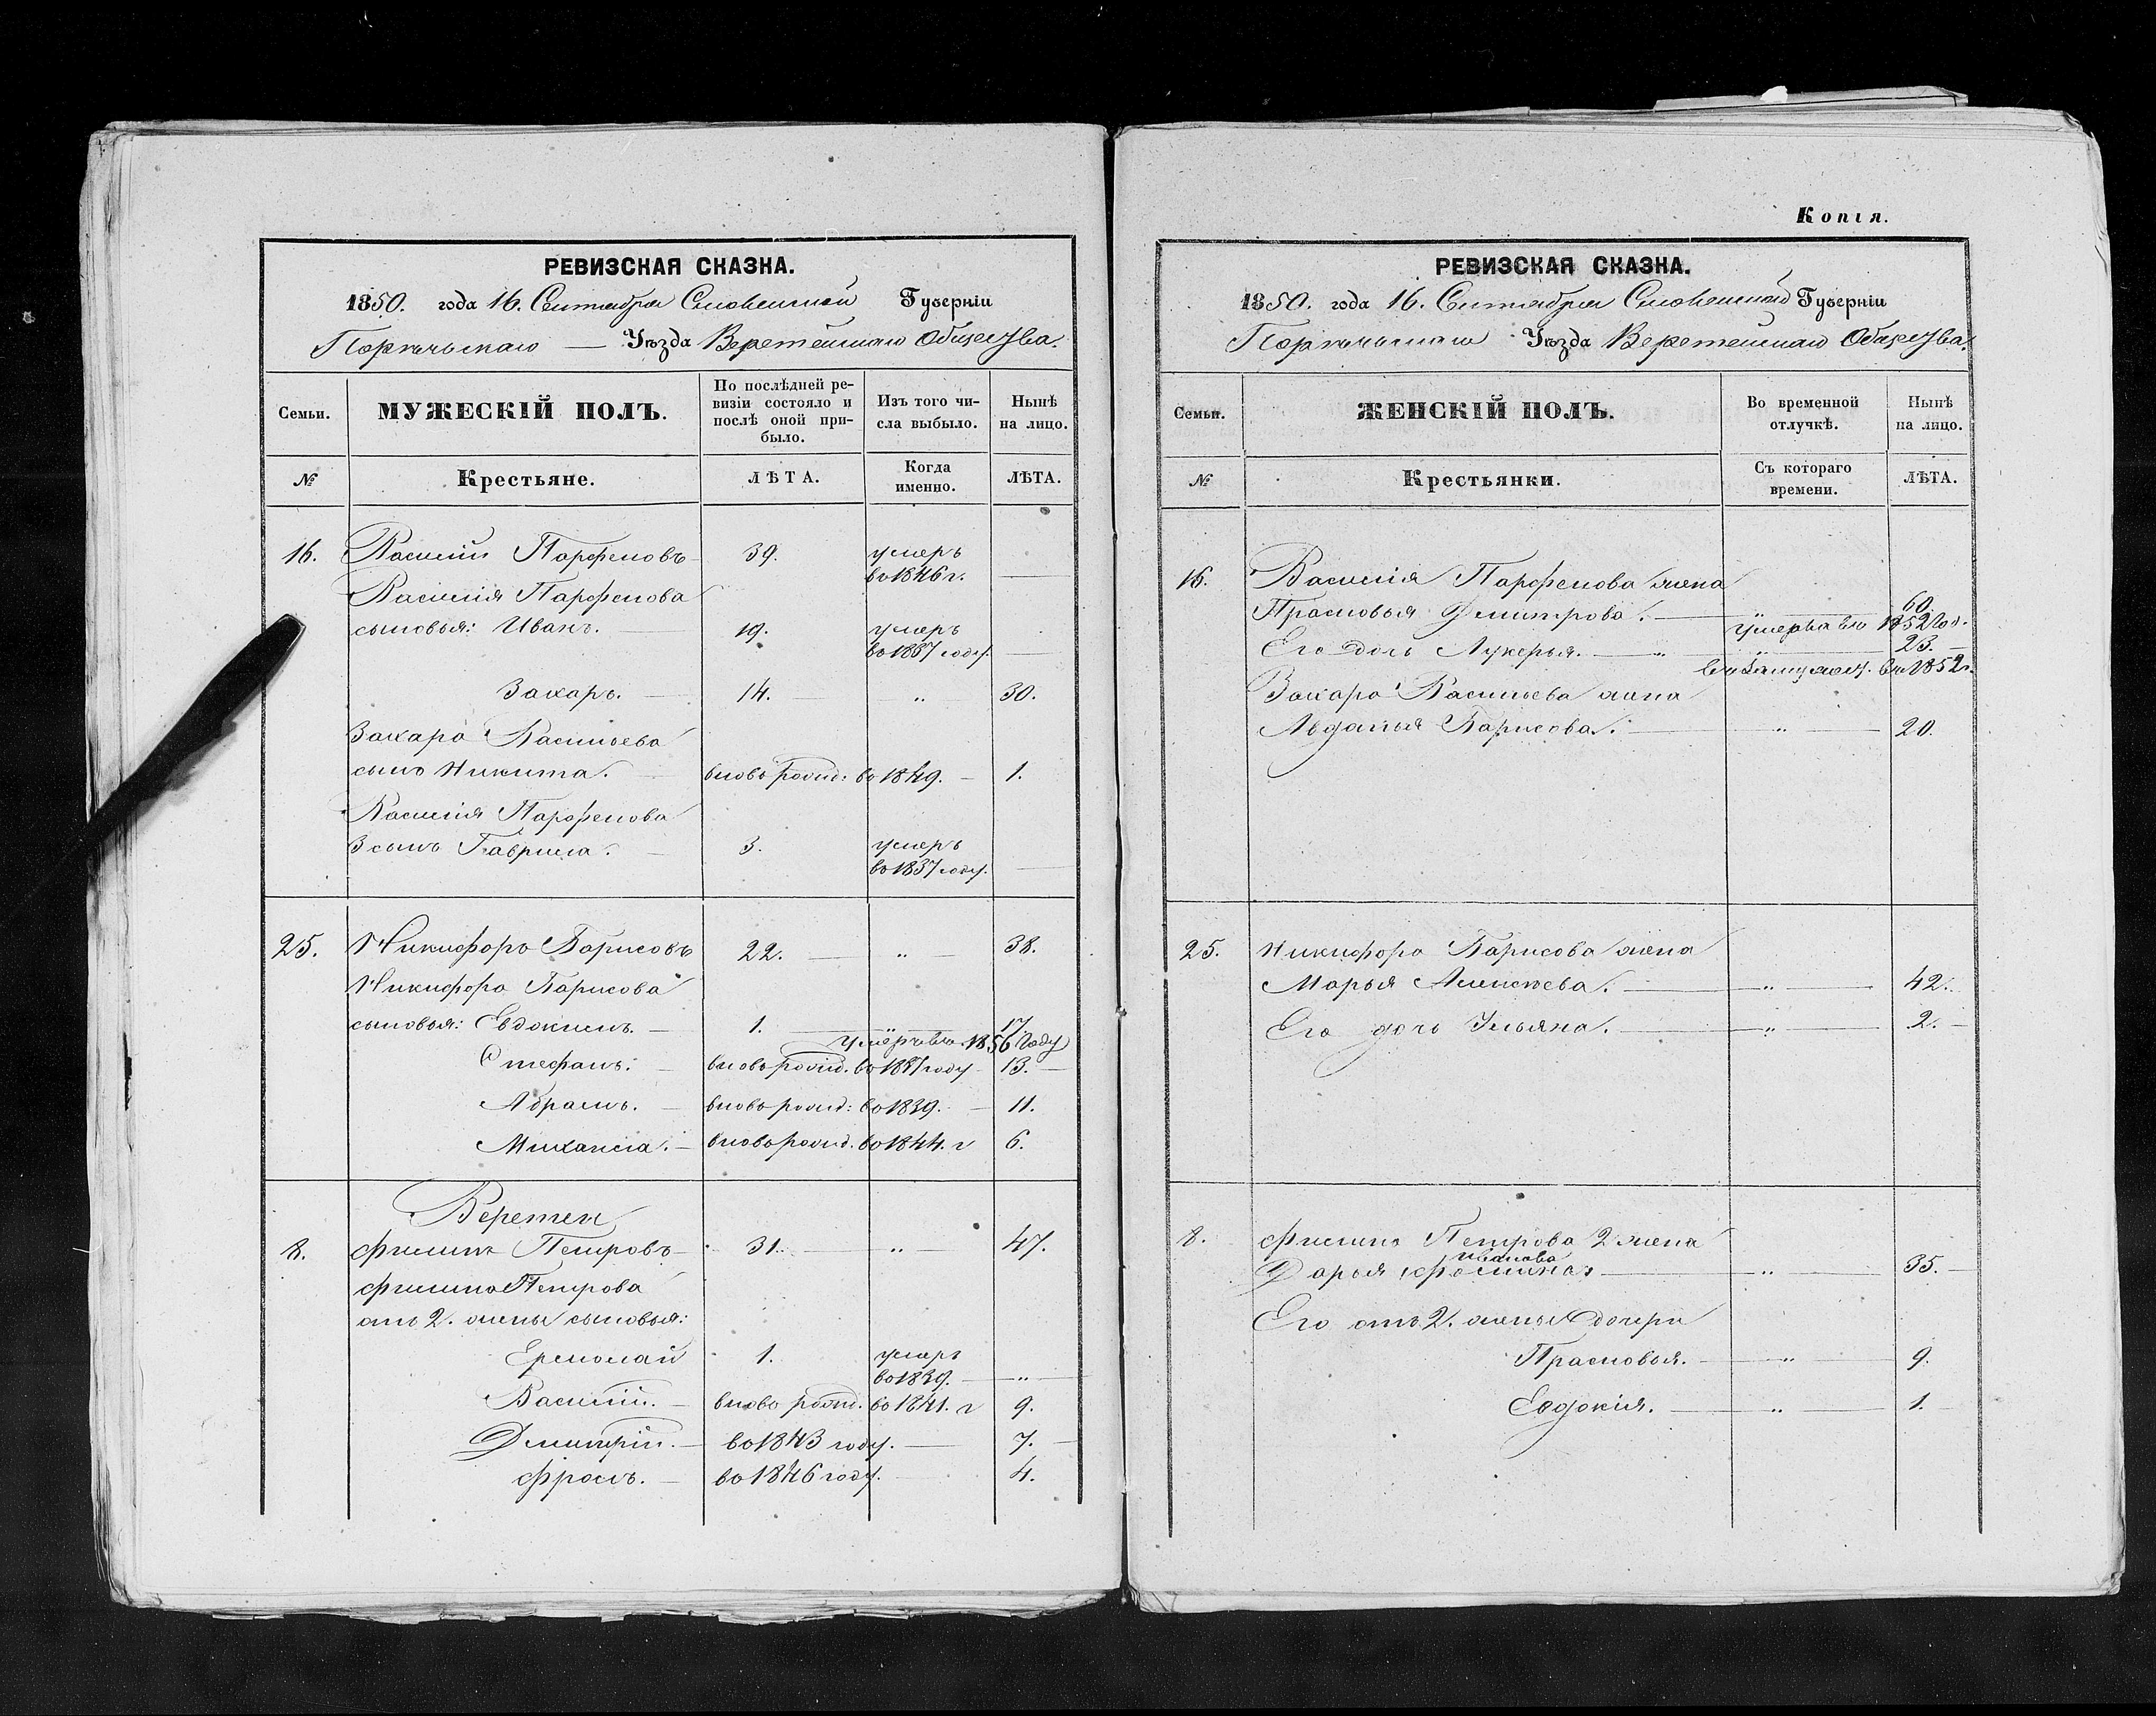 РЕВИЗСКАЯ СКАЗКА.
1850. года 16. Сентября Смоленской Губерніи
Порѣчьскаго — Уѣзда Веретейскаго Общества.
Семьи. МУЖЕСКІЙ ПОЛЪ. По послѣдней ре-
визіи состояло и
послѣ оной при-
было. Изъ того чи-
сла выбыло. Нынѣ
на лицо.
№ Крестьяне. ЛѢТА. Когда
именно. ЛѢТА.
16. Василій Парфеновъ 39. умеръ
во 1846 г. —
Василія Парфенова
сыновья: Иванъ. — 19. умеръ
во 1837 году. —
Захаръ. — 14. — „ — 30.
Захара Васильева
сынъ Никита. — вновь рожд: во 1849. — 1.
Василія Парфенова
3 сынъ Гаврила. — 3. умеръ
во 1837 году. —
25. Никифоръ Борисовъ 22. — „ — 38.
Никифора Борисова
сыновья: Евдокимъ. — 1. — 17.
умеръ въ 1856 году
Стефанъ. — вновь рожд. во 1837 году — 13. —
Абрамъ. — вновь рожд: во 1839. — 11.
Михаила. — вновь рожд. во 1844. г 6.
Веретеи
8. Филипъ Петровъ — 31. — „ 47.
Филипа Петрова
отъ 2. жены сыновья:
Ермолай 1. умеръ
во 1839. — „ —
Василій. — вновь рожд. во 1841. г 9.
Дмитрій. — во 1843 году. — 7. —
Фролъ. — во 1846 году. 4.
Копія.
РЕВИЗСКАЯ СКАЗКА.
1850. года 16. Сентября Смоленской Губерніи
Порѣчьскаго Уѣзда Веретейскаго Общества.
Семьи. ЖЕНСКІЙ ПОЛЪ. Во временной
отлучкѣ. Нынѣ
на лицо.
№ Крестьянки. Съ котораго
времени. ЛѢТА.
16. Василія Парфенова жена
Прасковья Дмитрова. — 60.
умерла въ 1852 год.
Его дочь Лукерья. — „ — 23. —
въ замужест. въ 1852 г.
Захара Васильева жена
Авдатья Борисова. — „ — 20.
25. Никифора Борисова жена
Марья Алексѣева. — „ — 42.
Его дочь Ульяна. — „ — 2. —
8. Филипа Петрова 2 жена
Иванова
Дарья Фомина — „ — 35. —
Его отъ 2. жены дочери
Прасковья. — „ — 9.
Евдокія. — „ — 1.